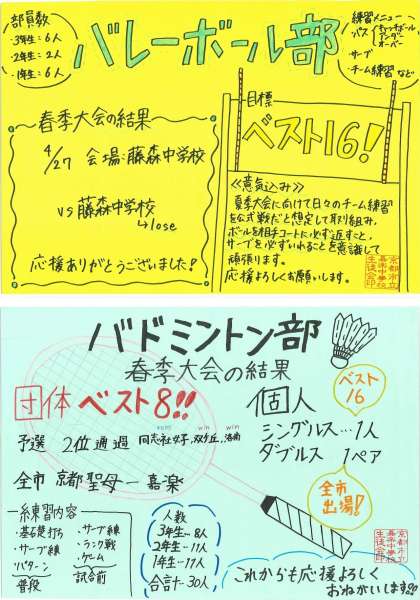 部員数
・3年生：6人
・2年生：2人
・1年生：6人
バレーボール部
練習メニュー
・パス
キャッチボール
アンダー
オーバー
・サーブ
・チーム練習 など
春季大会の結果
4/27 会場：藤森中学校
vs 藤森中学校
↳lose
応援ありがとうございました！
目標
ベスト16！
≪意気込み≫
夏季大会に向けて日々のチーム練習
を公式戦だと想定して取り組み、
ボールを相手コートに必ず返すこと、
サーブを必ずいれることを意識して
頑張ります。
応援よろしくお願いします。
京都市立
嘉楽中学校
生徒会印
バドミントン部
春季大会の結果
団体 ベスト8!!
予選 2位通過
同志社女子,双ケ丘,洛南
win win
全市 京都聖母ー嘉楽
個人
ベスト
16
シングルス…1人
ダブルス 1ペア
全市
出場!!
ー練習内容
・基礎打ち
・サーブ練
・パターン
普段
・サーブ練
・ランク戦
・ゲーム
試合前
人数
3年生…8人
2年生…11人
1年生…11人
合計…30人
京都市立
嘉楽中学校
生徒会印
これからも応援よろしく
おねがいします!!